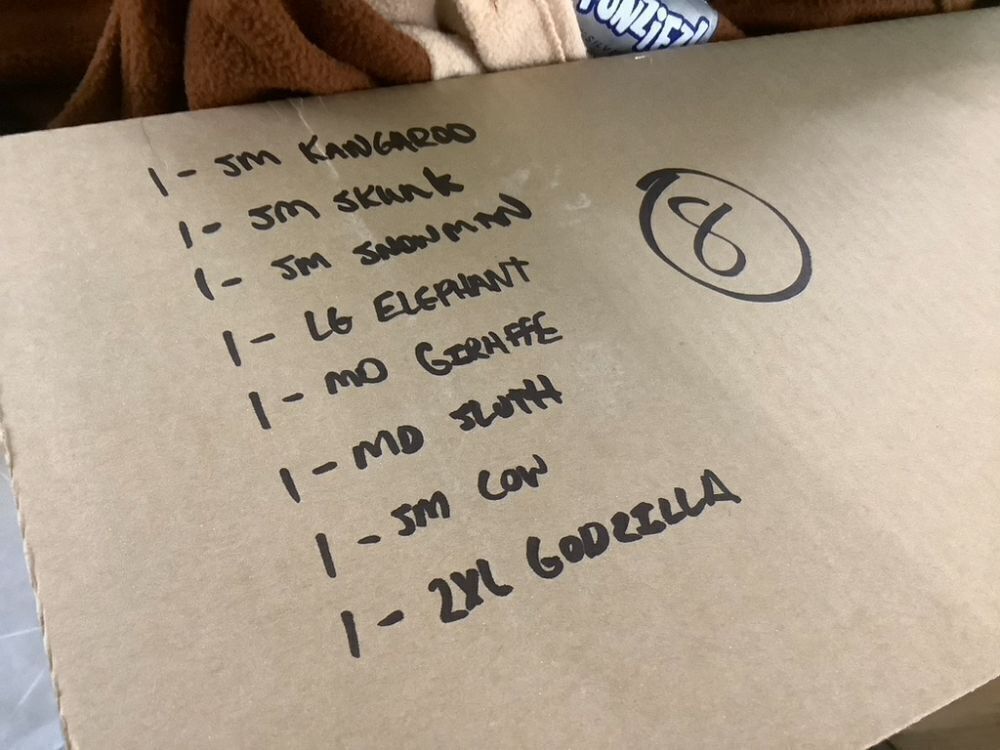 FUNZiEZ!
SILVE
1 - SM KANGAROO
1 - SM SKUNK
1 - SM SNOWMAN
1 - LG ELEPHANT
1 - MD GIRAFFE
1 - MD SLOTH
1 - SM COW
1 - 2XL GODZILLA
8